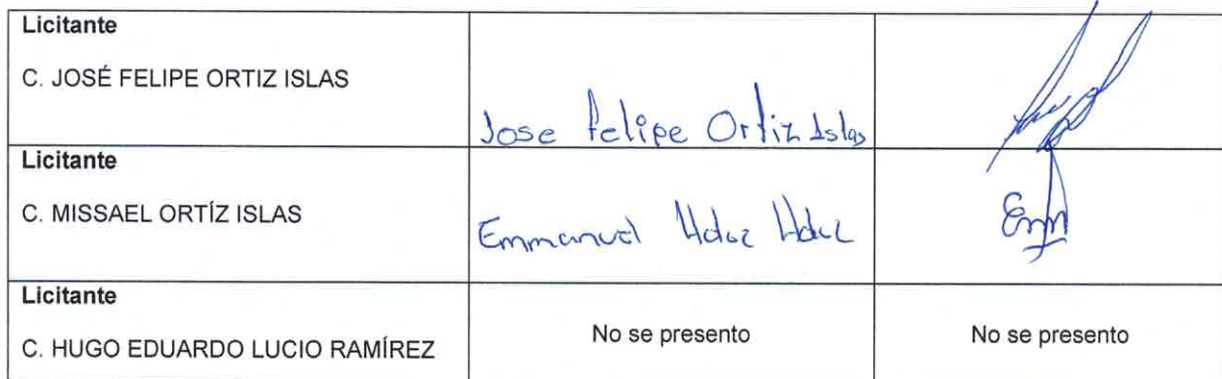 Licitante
C. JOSÉ FELIPE ORTIZ ISLAS
Jose Felipe Ortiz Islas
Licitante
C. MISSAEL ORTÍZ ISLAS
Emmanuel Hdez Hdez
Licitante
C. HUGO EDUARDO LUCIO RAMÍREZ
No se presento
No se presento